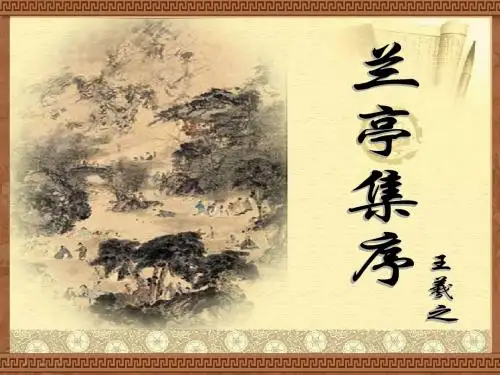 兰亭集序
王羲之